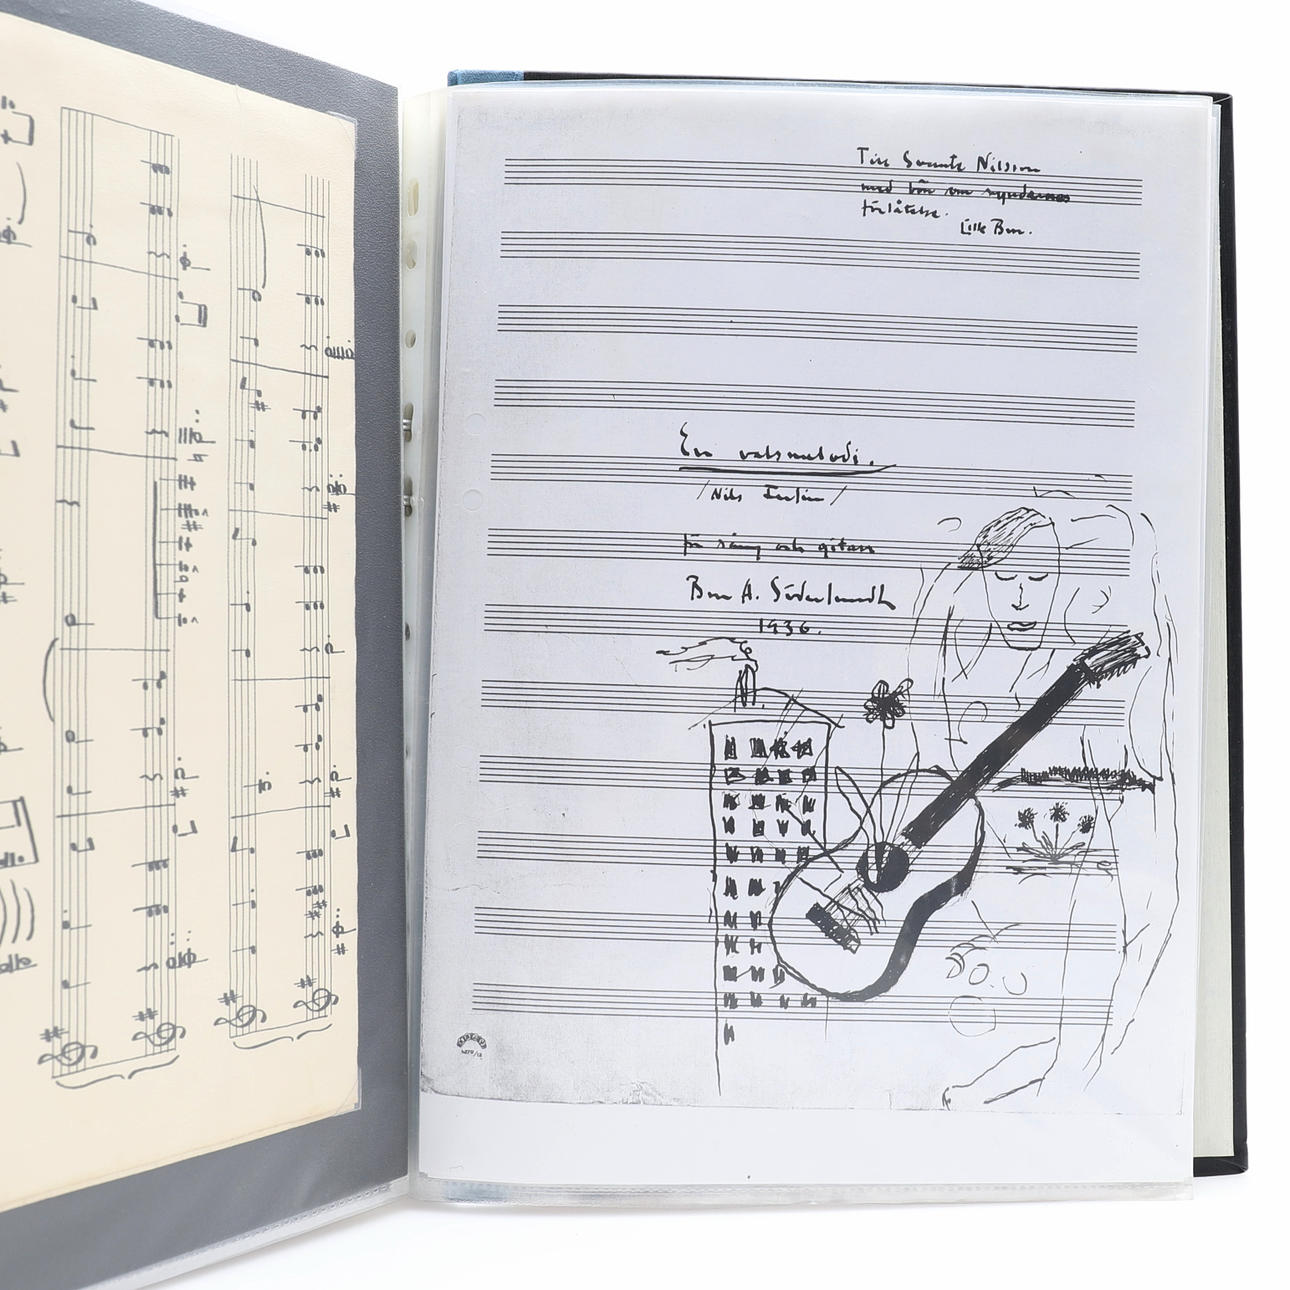 Till Svante Nilsson
med bön om syndernas
förlåtelse.
Lille Bror.
En valsmelodi.
/Nils Ferlin/
för sång och gitarr
Bror A. Söderlundh
1936.